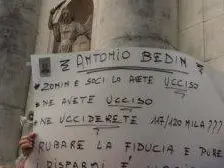 ANTONIO BEDIN
* ZONIN E SOCI LO AVETE UCCISO
* NE AVETE UCCISO
* NE UCCIDERETE 117/120 MILA ???
RUBARE LA FIDUCIA E PURE
I RISPARMI È